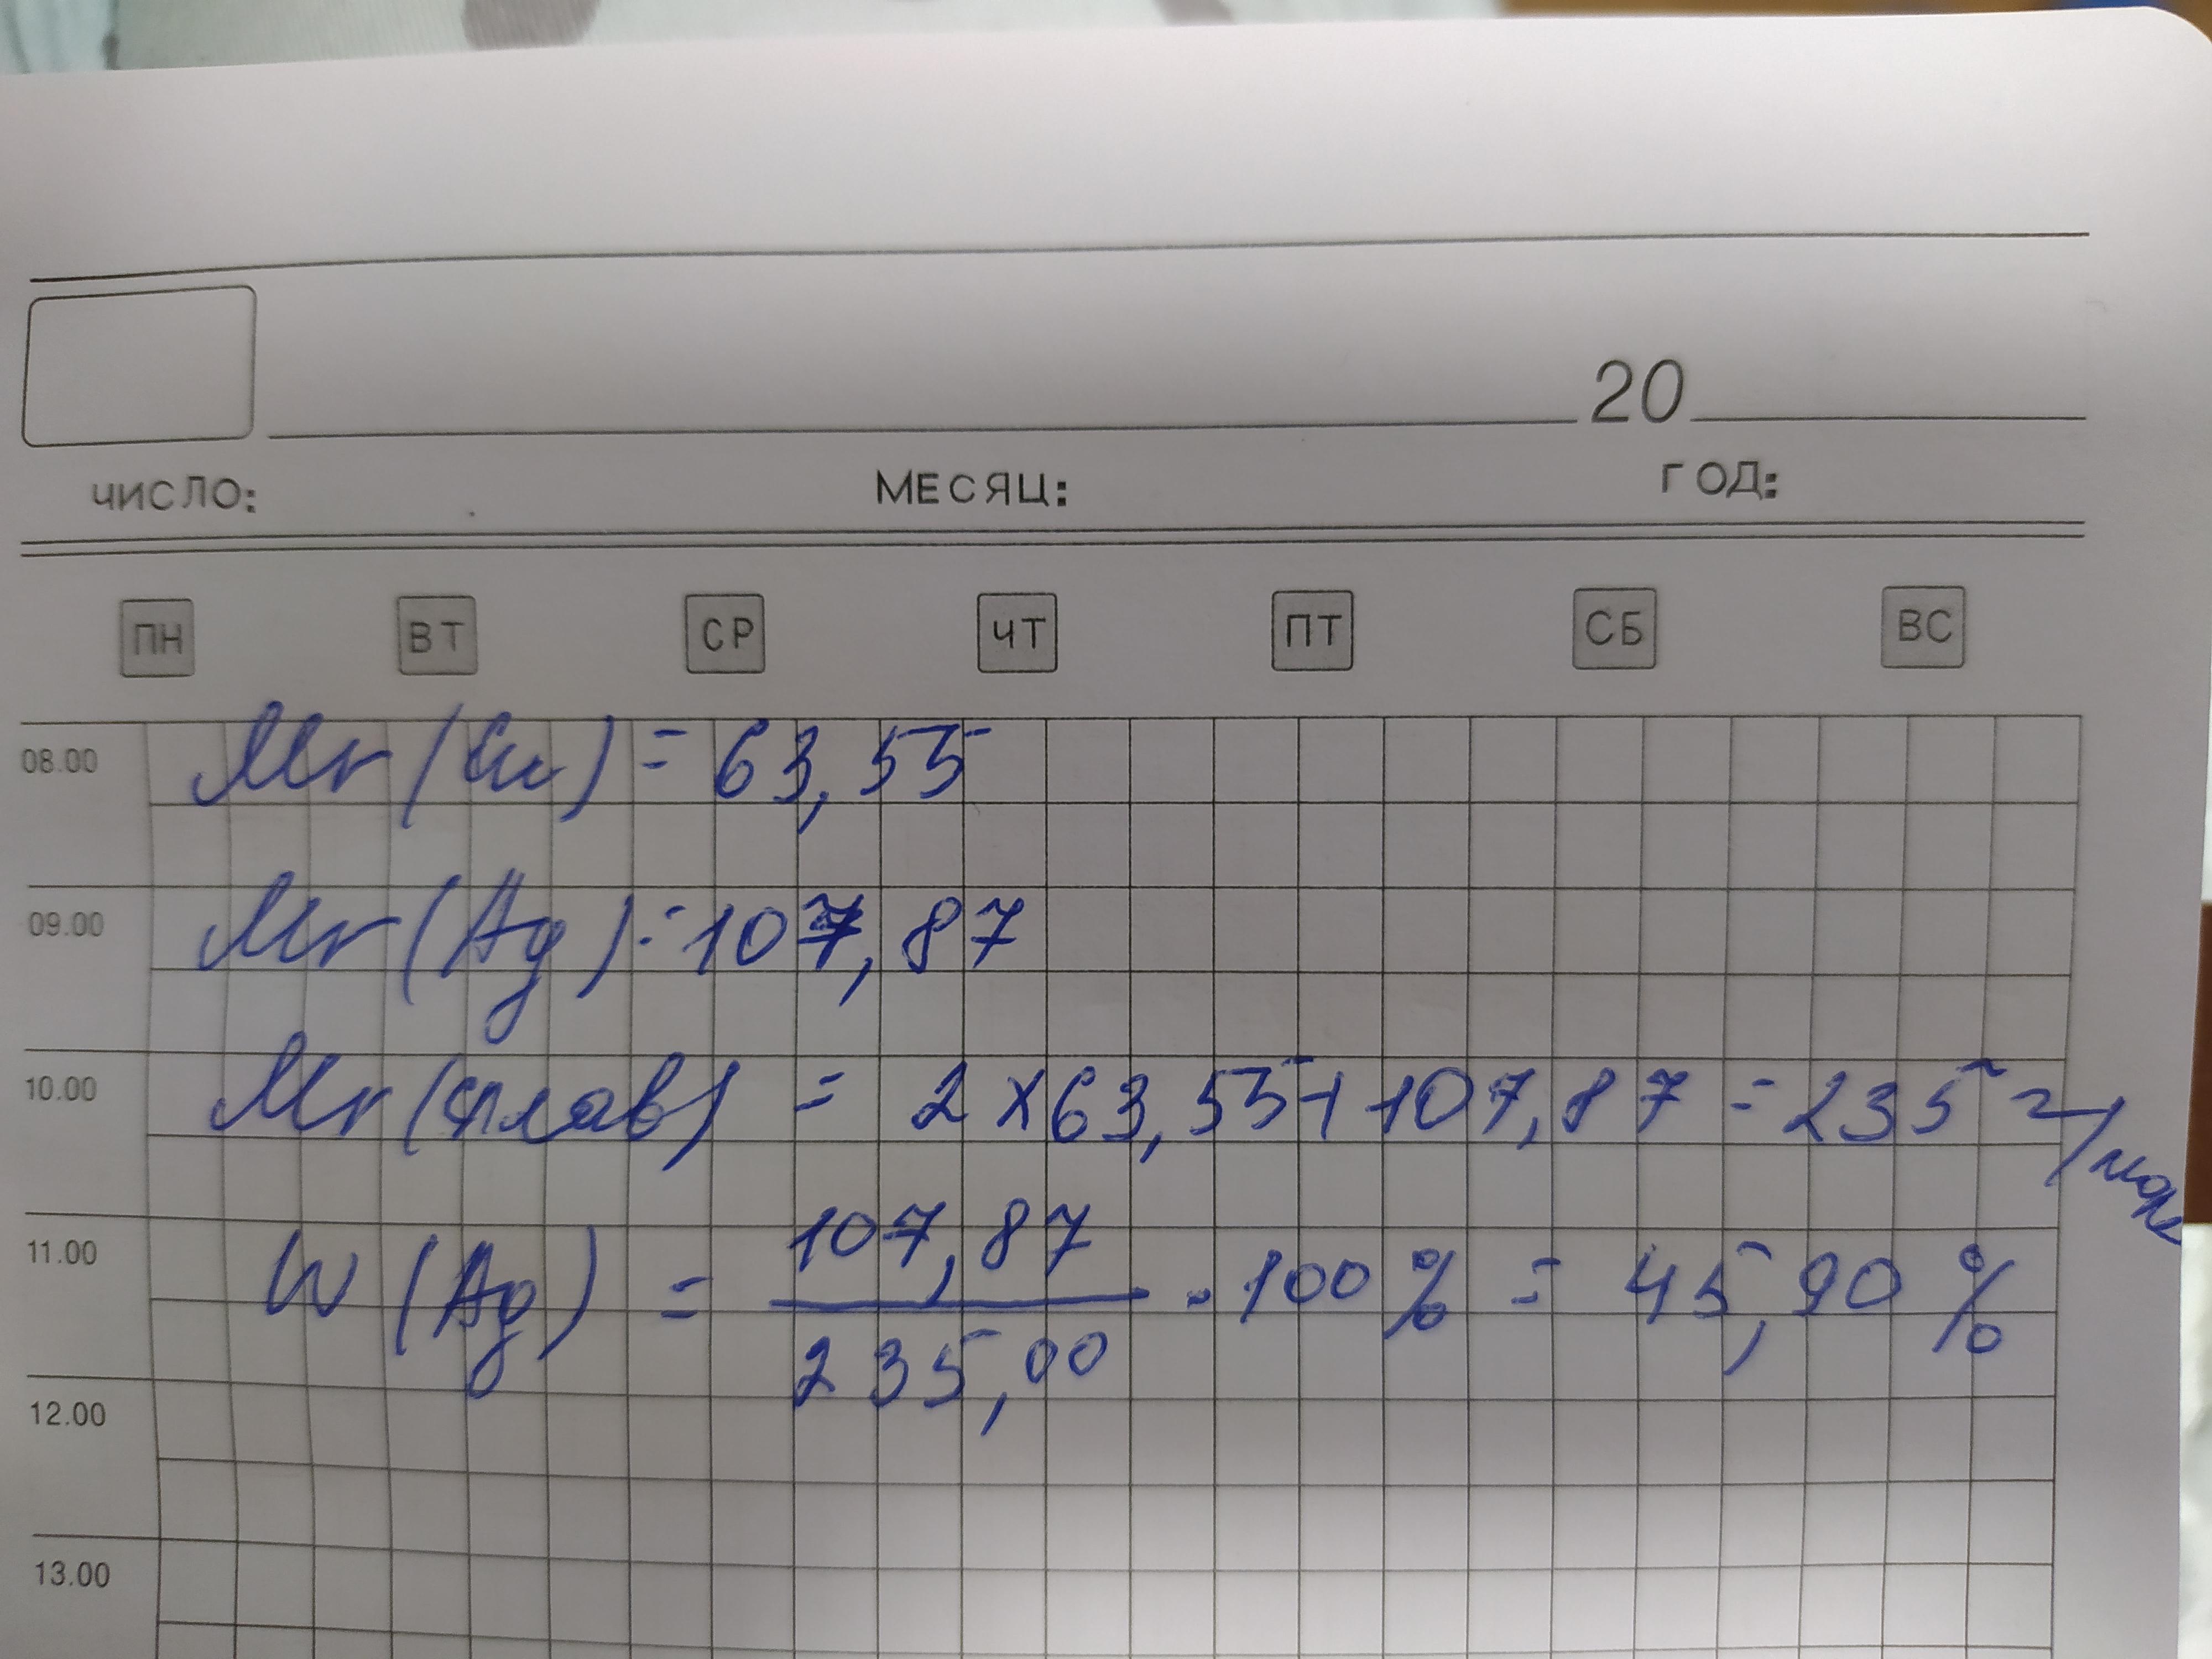 20
ЧИСЛО: МЕСЯЦ: ГОД:
ПН ВТ СР ЧТ ПТ СБ ВС
08.00 Mr (Cu) = 63,55
09.00 Mr (Ag) = 107,87
10.00 Mr (сплав) = 2 x 63,55 + 107,87 = 235 г/моль
11.00 W (Ag) = 107,87 / 235,00 · 100 % = 45,90 %
12.00
13.00